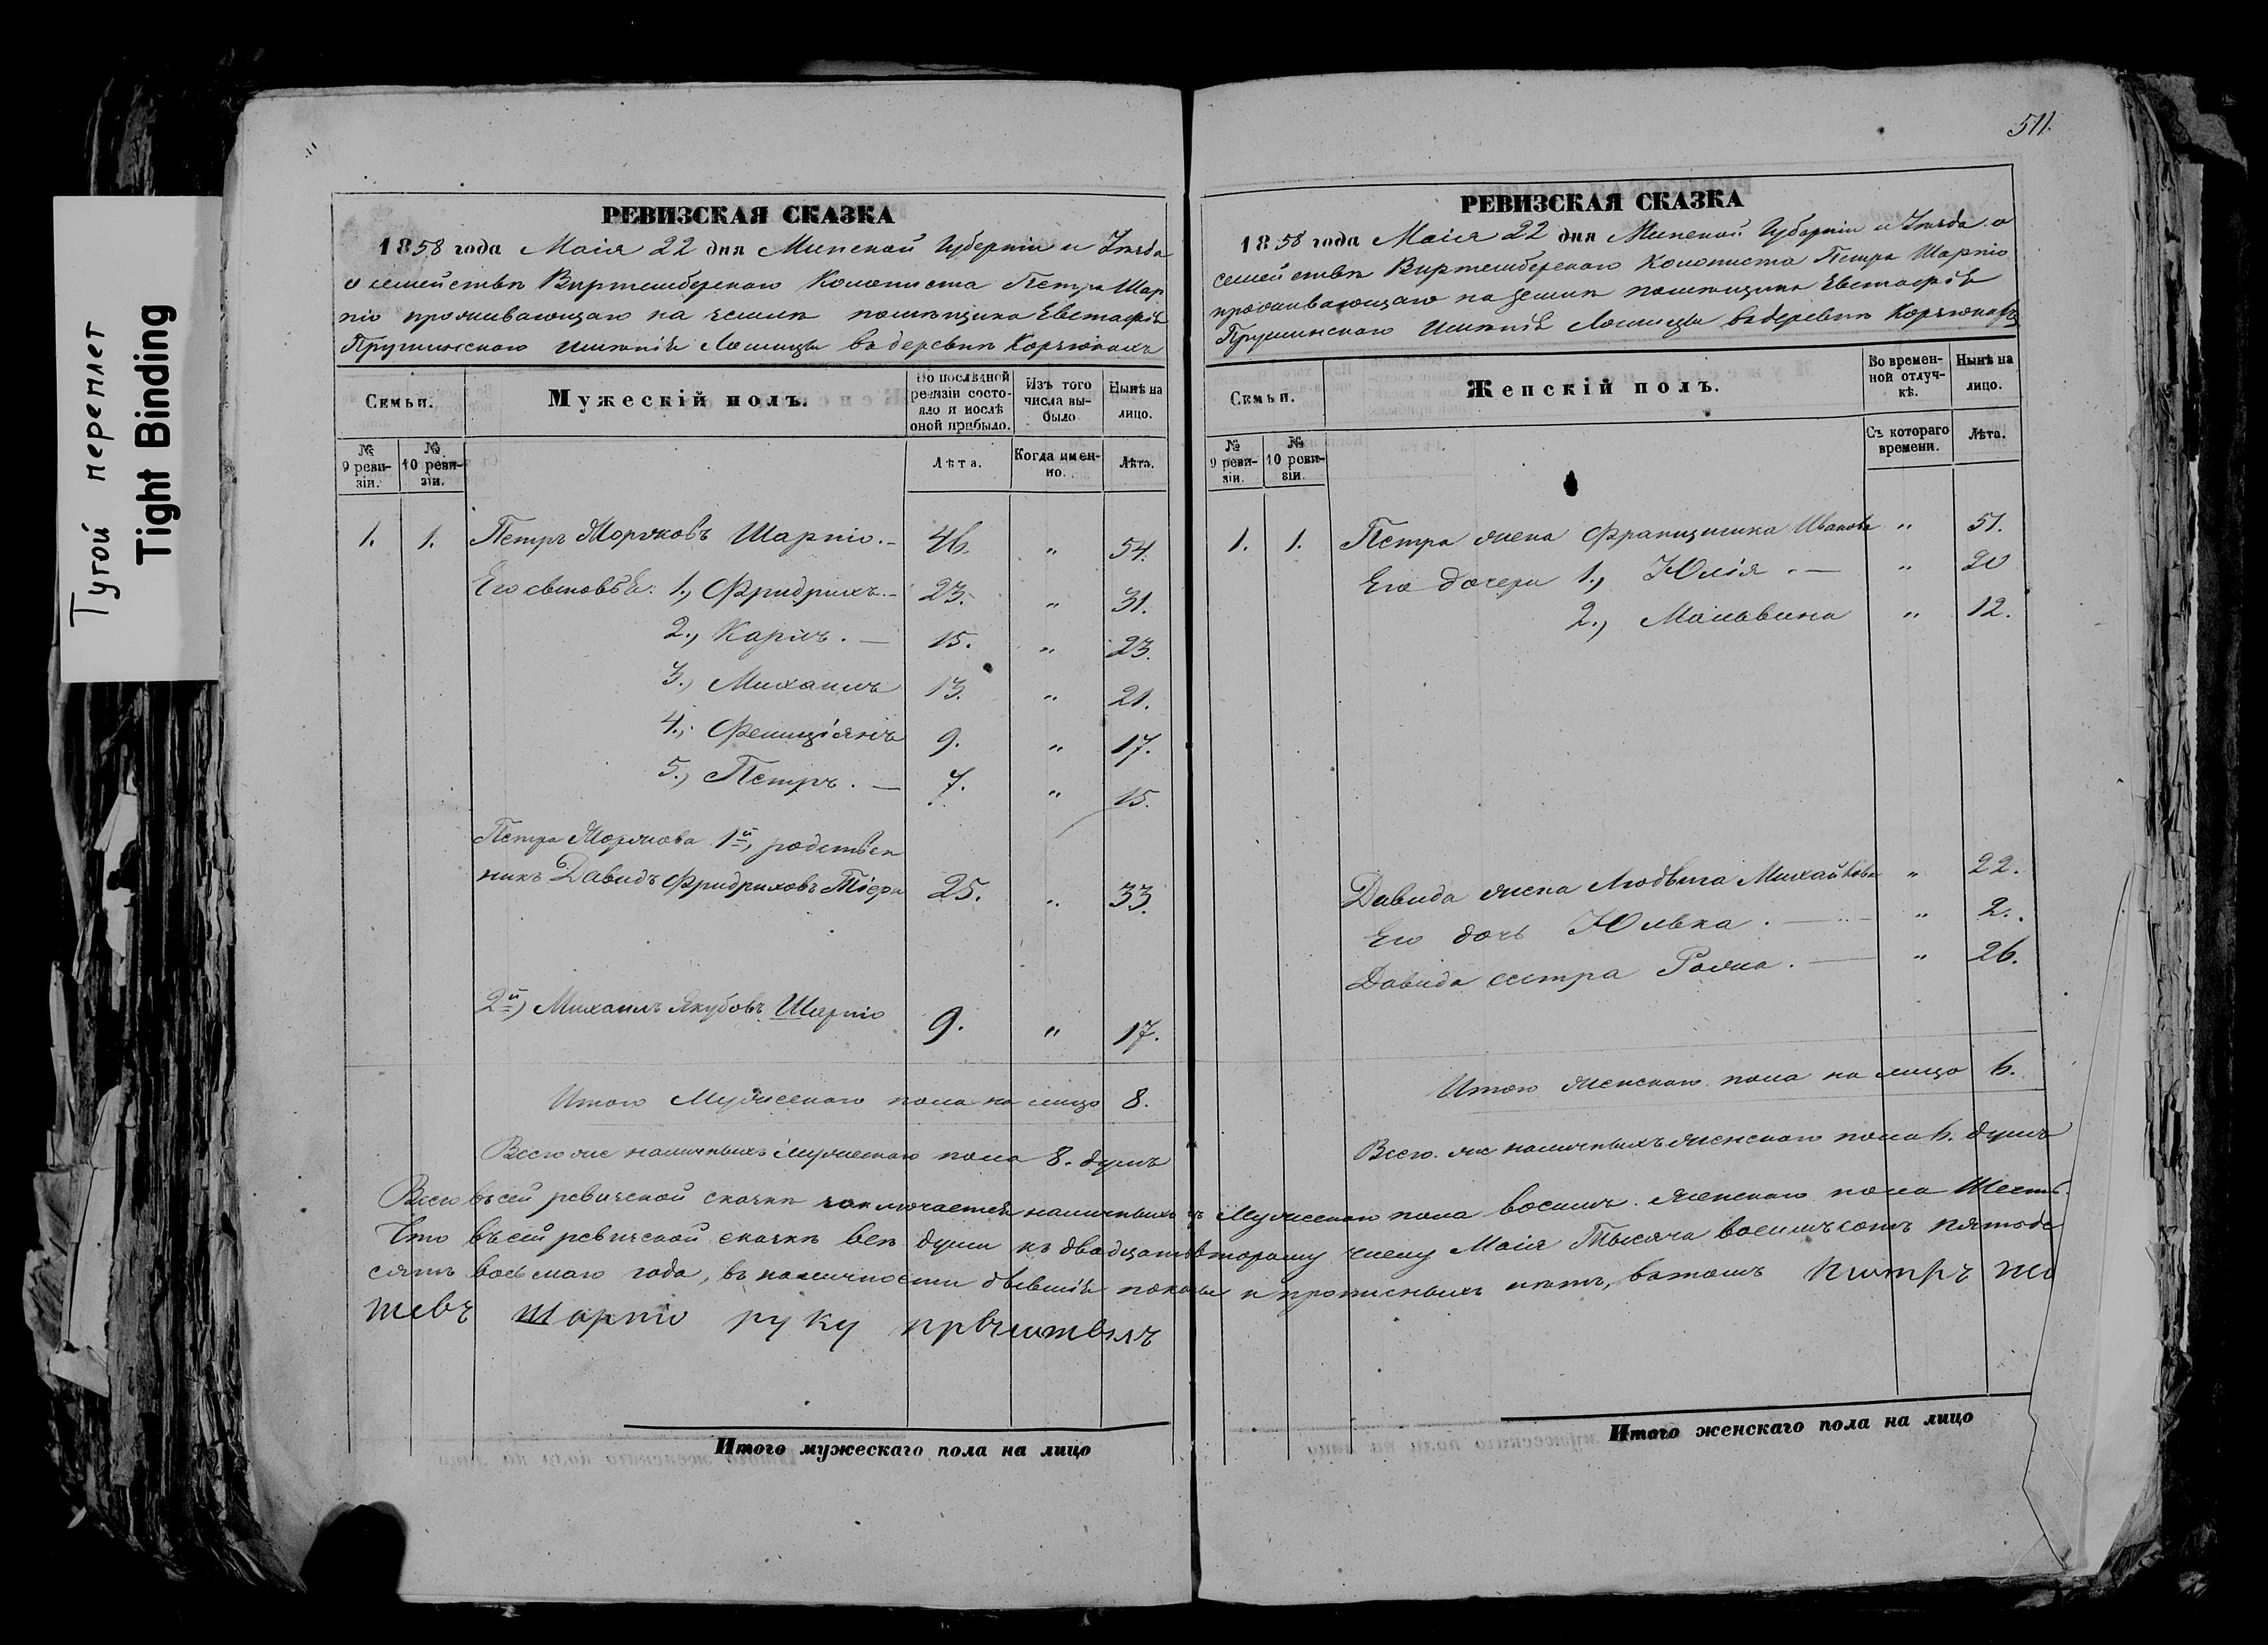 Тугой переплет
Tight Binding
РЕВИЗСКАЯ СКАЗКА
1858 года Маія 22 дня Минской Губерніи и Уѣзда
о семействѣ Виртембергскаго Колониста Петра Шар
піо проживающаго на землѣ помѣщика Евстафія
Прушинскаго имѣнія Лошицы въ деревнѣ
Семьи.
Мужескій полъ.
По послѣдней ревизіи состояло и послѣ оной прибыло.
Изъ того числа выбыло
Нынѣ на лицо.
№ 9 ревизіи.
№ 10 ревизіи.
Лѣта.
Когда именно.
Лѣта.
1. 1. Петръ Шарпіо. 46. " 54.
Его сыновья: 1., Фридрихъ. 23. " 31.
2., Карлъ. 15. " 23.
3., Михаилъ 13. " 21.
4., 9. " 17.
5., Петръ. 7. " 15.
Петра 1й, родствен
никъ Давидъ Фридриховъ 25. " 33.
2й) Михаилъ Якубовъ Шарпіо 9. " 17.
Итого Мужескаго пола на лицо 8.
Всего же наличныхъ мужескаго пола 8. душъ
Итого мужескаго пола на лицо
511.
РЕВИЗСКАЯ СКАЗКА
1858 года Маія 22 дня Минской Губерніи и Уѣзда о
семействѣ Виртембергскаго Колониста Петра Шарпіо
проживающаго на землѣ помѣщика Евстафія
Прушинскаго имѣнія Лошицы въ деревнѣ
Семьи.
Женскій полъ.
Во временной отлучкѣ.
Нынѣ на лицо.
№ 9 ревизіи.
№ 10 ревизіи.
Съ котораго времени.
Лѣта.
1. 1. Петра жена Францишка Иванова " 51.
Его дочери 1., Юлія. " 20
2., Мальвина " 12.
Давида жена Людвига " 22.
Его дочь Юлька. " 2.
Давида сестра " 26.
Итого женскаго пола на лицо 6.
Всего же наличныхъ женскаго пола 6. душъ
Всего въ сей ревизской сказкѣ заключается наличныхъ Мужескаго пола восемь. Женскаго пола Шесть.
Что въ сей ревизской сказкѣ всѣ души къ двадцать второму числу Маія Тысяча восемьсотъ пятьде
сятъ восьмаго года, въ наличности бывшія показаны и прописныхъ нѣтъ, въ томъ
Шарпіо руку
Итого женскаго пола на лицо